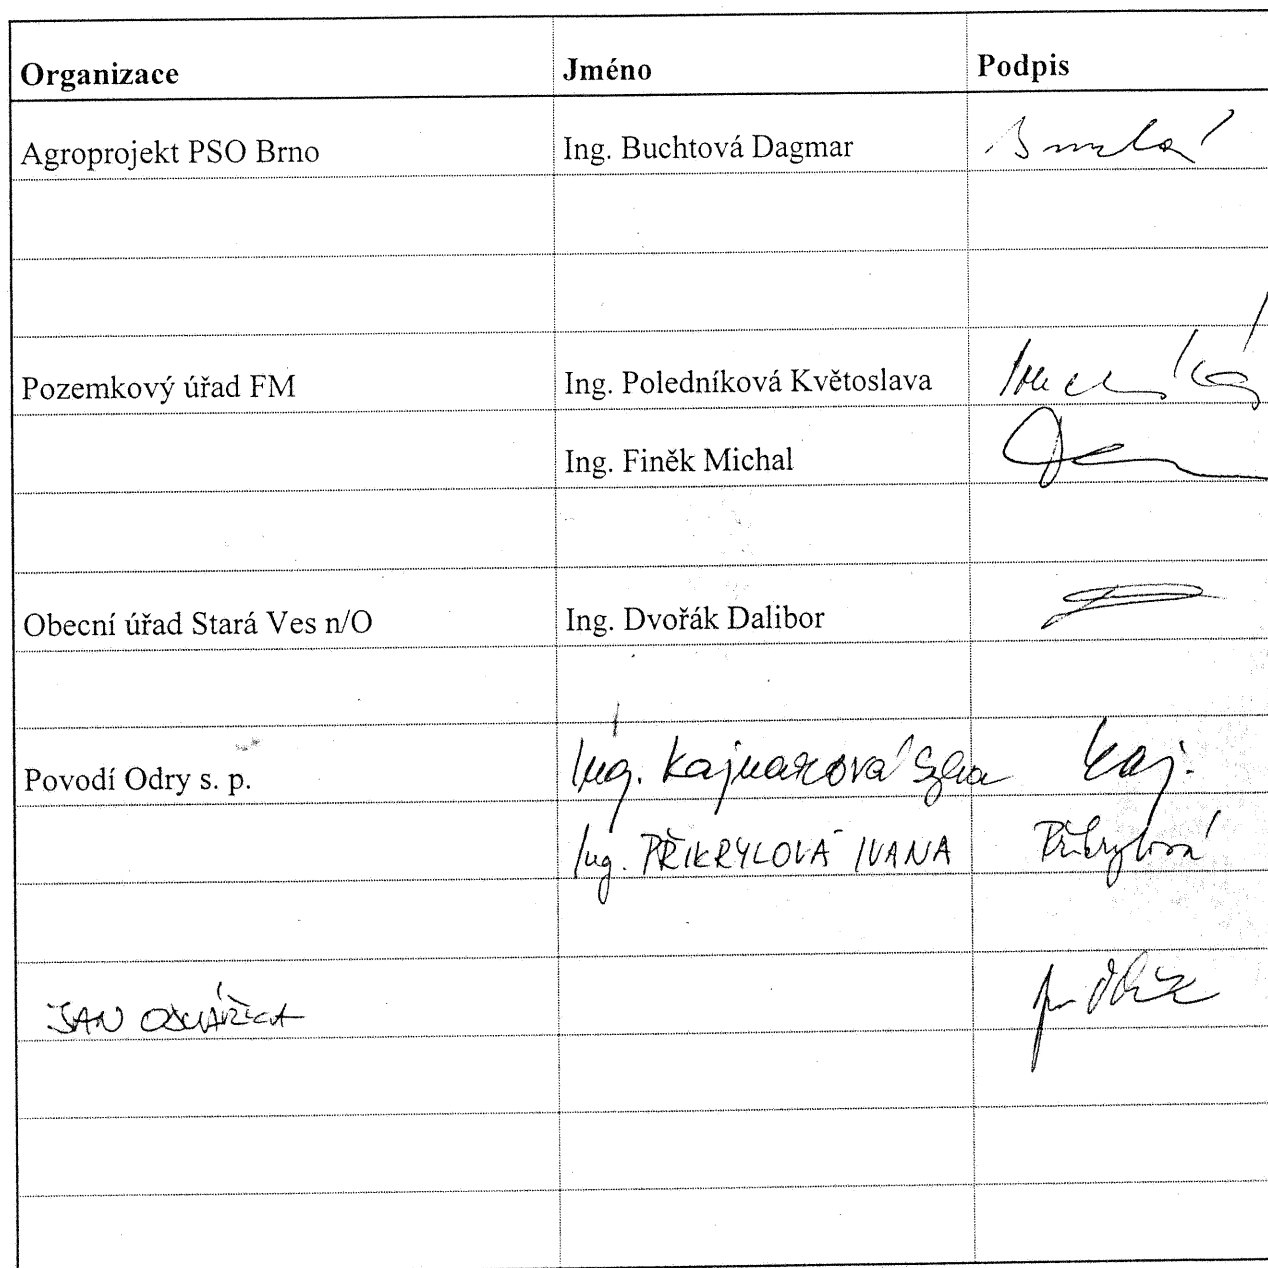 Organizace Jméno Podpis
Agroprojekt PSO Brno Ing. Buchtová Dagmar
Pozemkový úřad FM Ing. Poledníková Květoslava
Ing. Finěk Michal
Obecní úřad Stará Ves n/O Ing. Dvořák Dalibor
Povodí Odry s. p. Ing. Kajnarová Kaj.
Ing. PŘIKRYLOVÁ IVANA Přikrylová
JAN